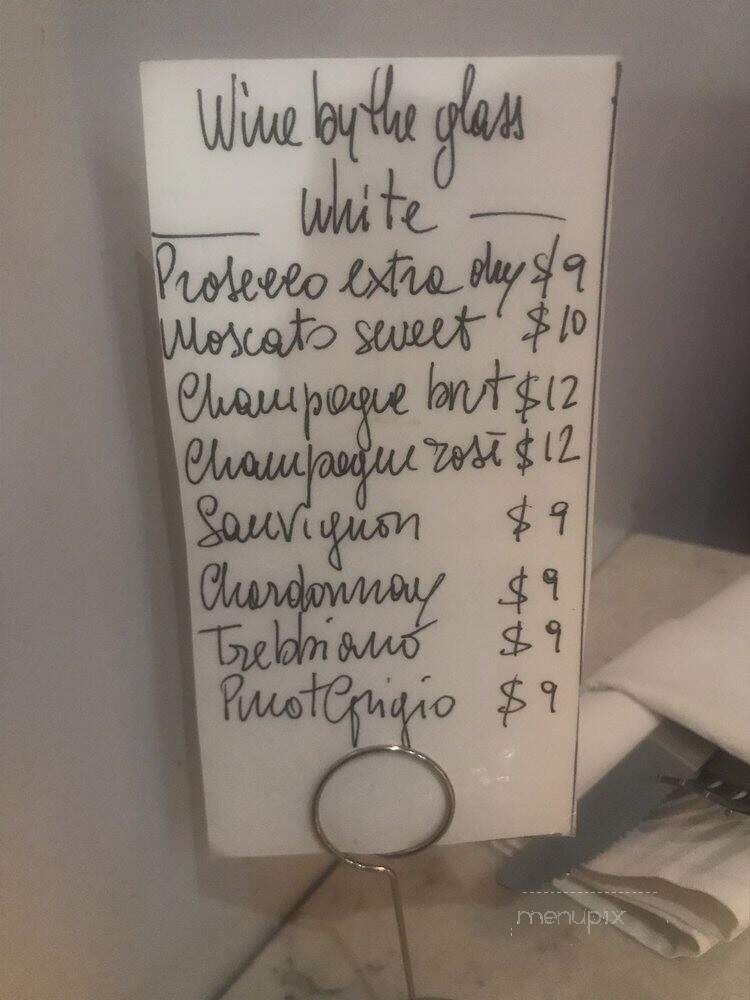 Wine by the glass
White
Prosecco extra dry $9
Moscato sweet $10
Champagne brut $12
Champagne rosé $12
Sauvignon $9
Chardonnay $9
Trebbiano $9
Pinot Grigio $9
menupix